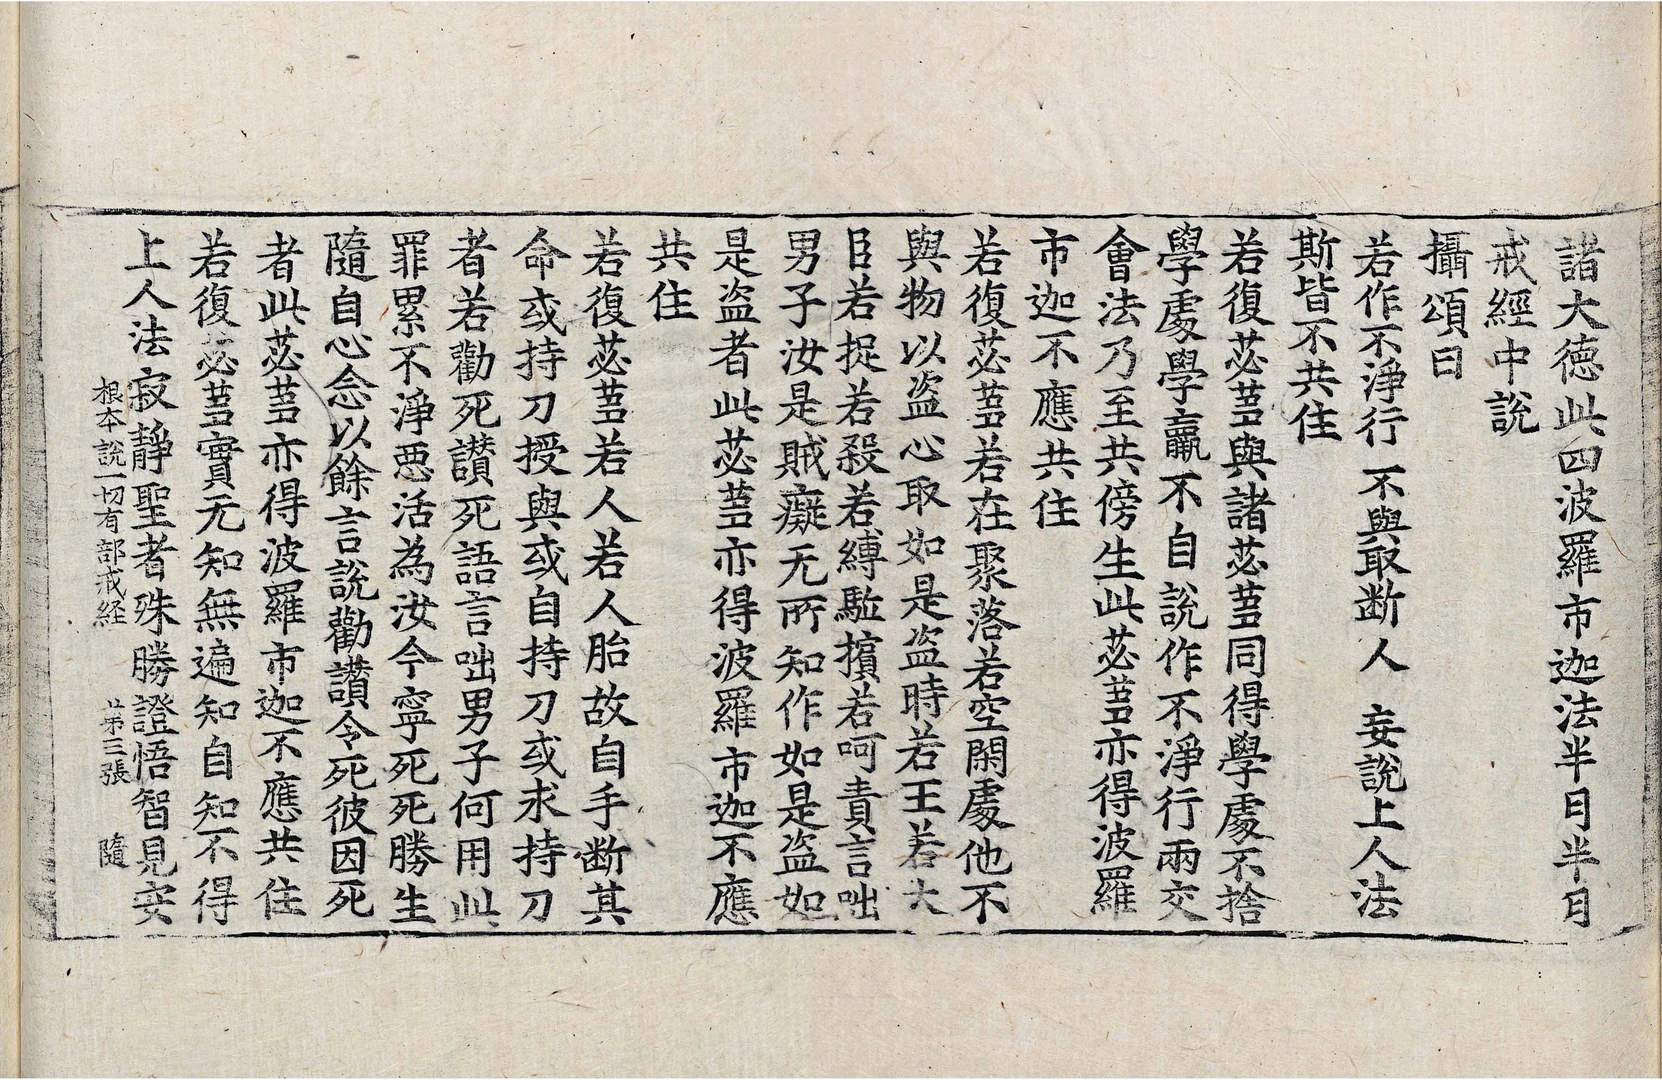 諸大德此四波羅市迦法半月半月
戒經中說
攝頌曰
若作不淨行 不與取断人 妄說上人法
斯皆不共住
若復苾蒭與諸苾蒭同得學處不捨
學處學羸不自說作不淨行兩交
會法乃至共傍生此苾蒭亦得波羅
市迦不應共住
若復苾蒭若在聚落若空閑處他不
與物以盗心取如是盗時若王若大
臣若捉若殺若縛駈擯若呵責言咄
男子汝是賊癡无所知作如是盗如
是盗者此苾蒭亦得波羅市迦不應
共住
若復苾蒭若人若人胎故自手断其
命或持刀授與或自持刀或求持刀
者若勸死讃死語言咄男子何用此
罪累不淨惡活為汝今寧死死勝生
隨自心念以餘言說勸讃令死彼因死
者此苾蒭亦得波羅市迦不應共住
若復苾蒭實无知無遍知自知不得
上人法寂靜聖者殊勝證悟智見安
根本說一切有部戒経 第三張 隨